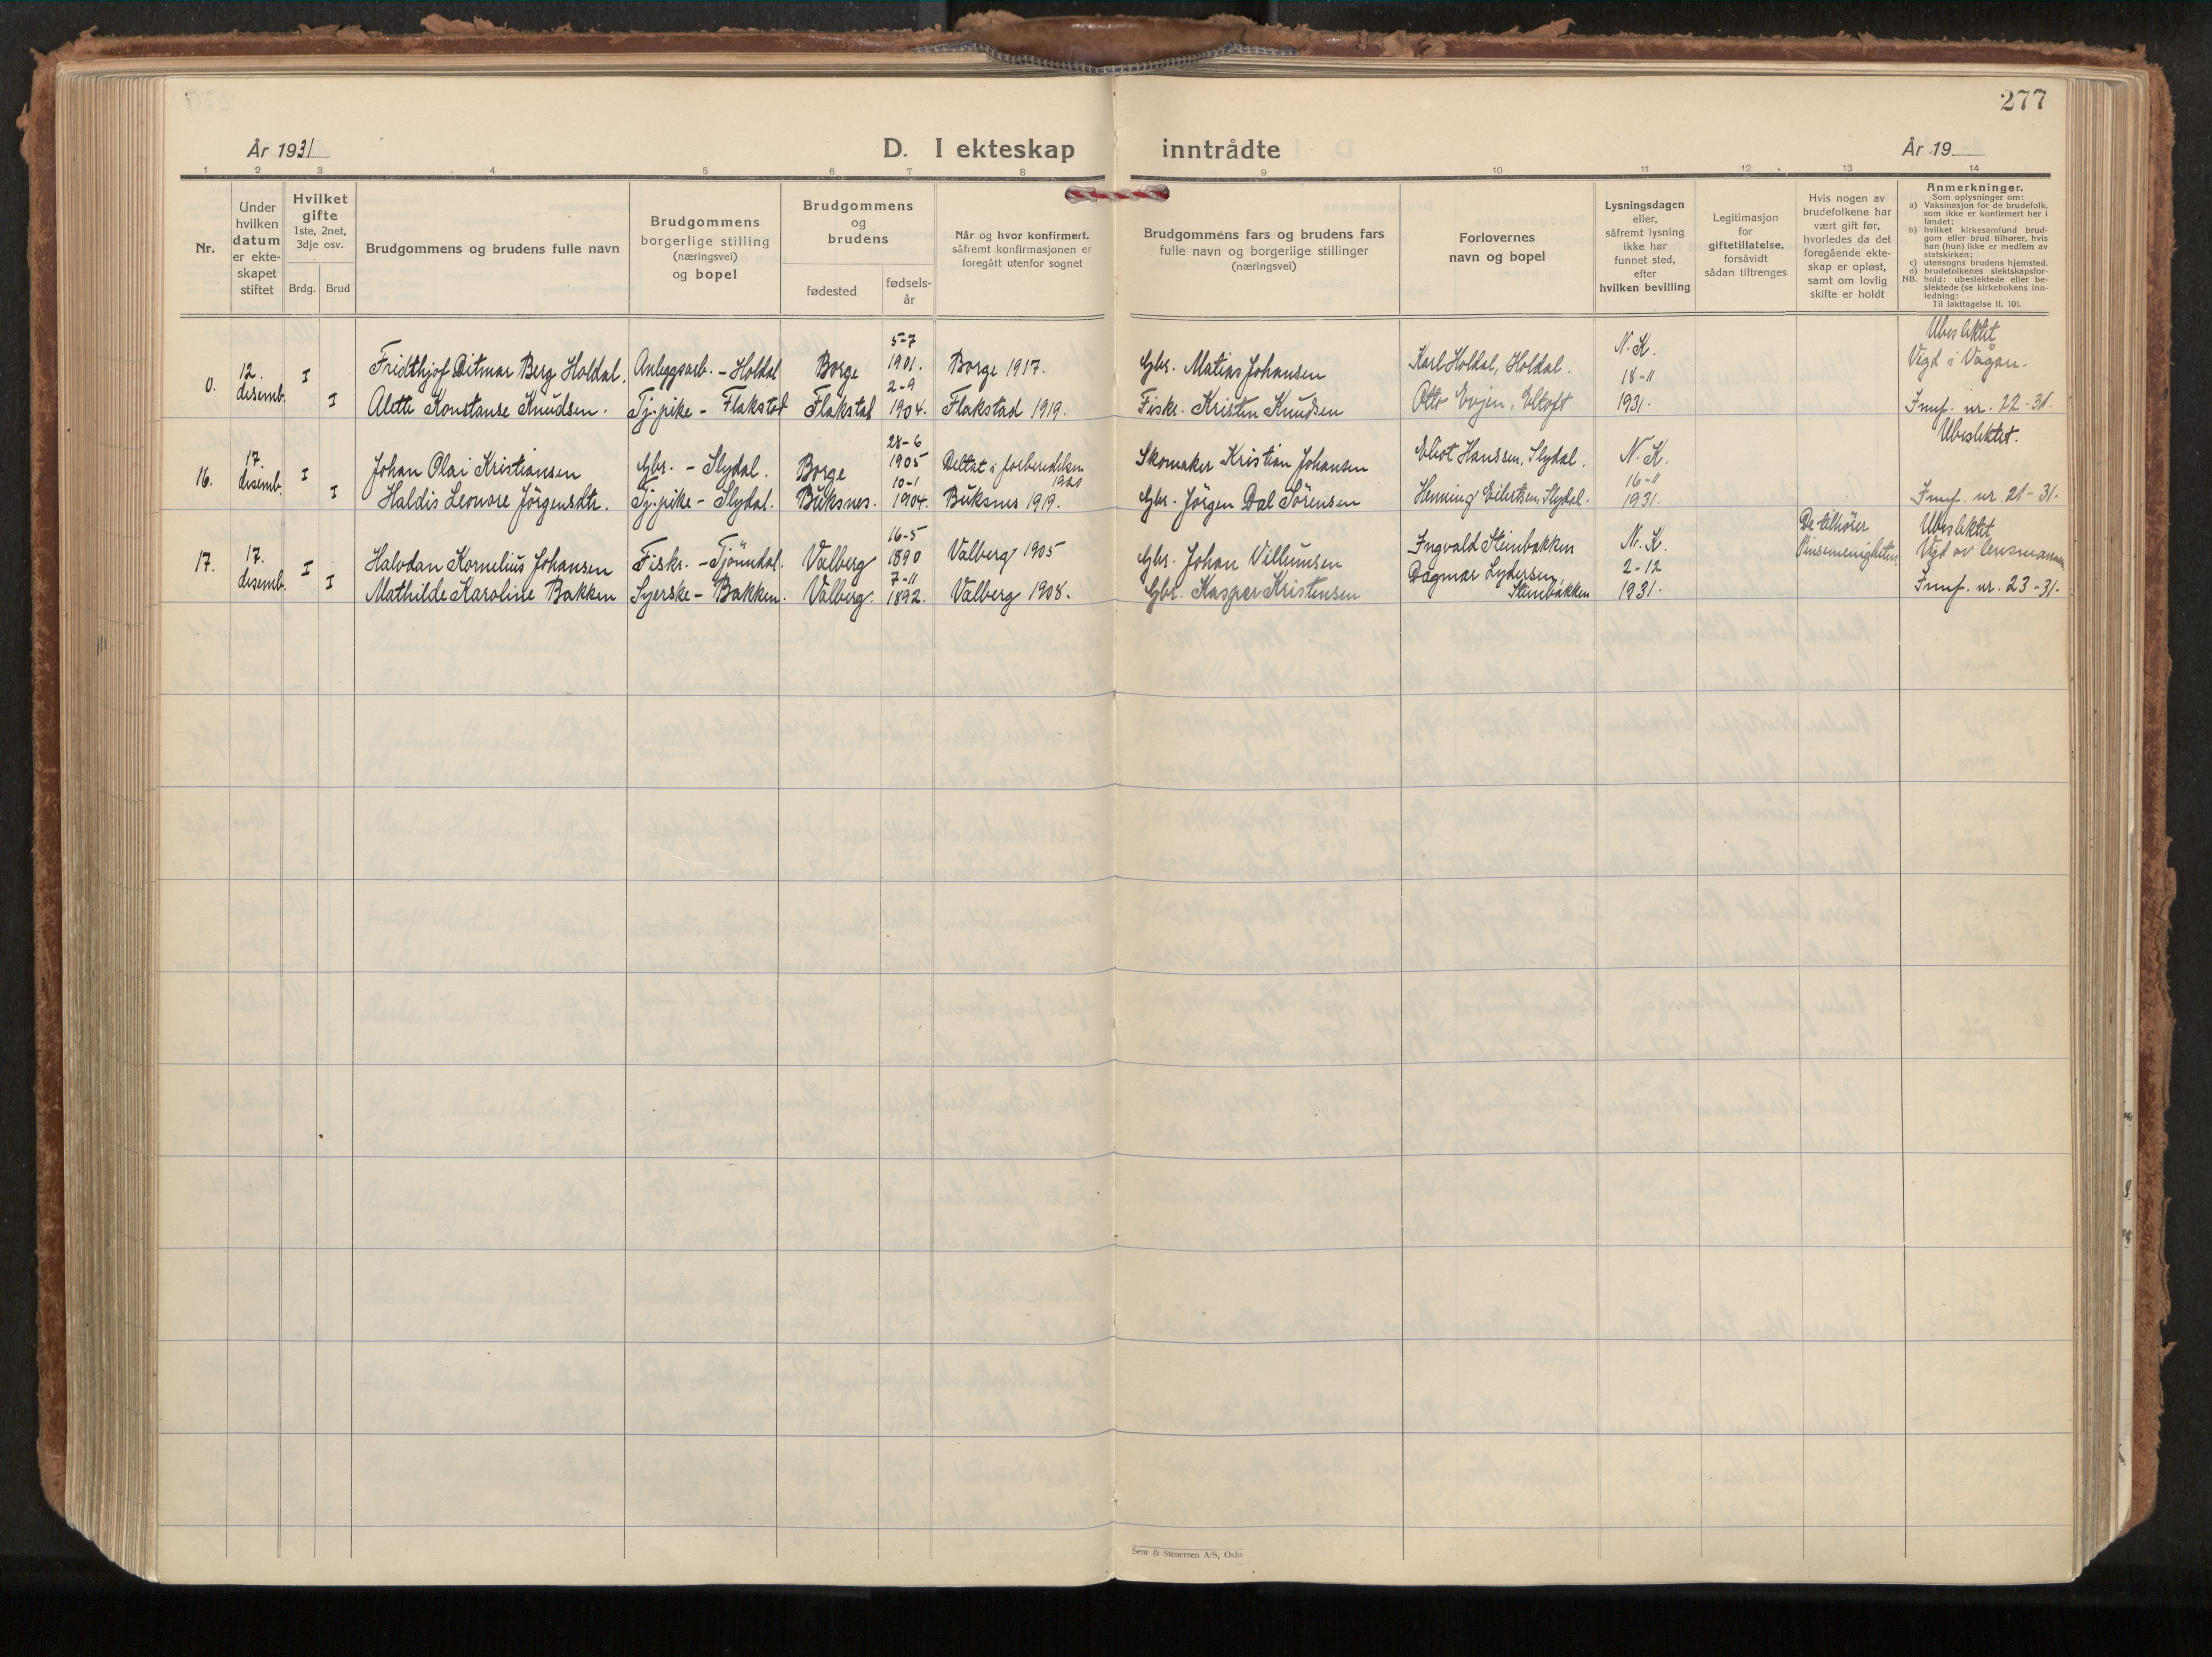 277
År 1931
D. I ekteskap inntrådte
År 19
1 2 3 4 5 6 7 8 9 10 11 12 13 14
Nr.
Under
hvilken
datum
er ekte-
skapet
stiftet
Hvilket
gifte
1ste, 2net,
3dje osv.
Brdg. Brud
Brudgommens og brudens fulle navn
Brudgommens
borgerlige stilling
(næringsvei)
og bopel
Brudgommens
og
brudens
fødested
fødsels-
år
Når og hvor konfirmert.
såfremt konfirmasjonen er
foregått utenfor sognet
Brudgommens fars og brudens fars
fulle navn og borgerlige stillinger
(næringsvei)
Forlovernes
navn og bopel
Lysningsdagen
eller,
såfremt lysning
ikke har
funnet sted,
efter
hvilken bevilling
Legitimasjon
for
giftetillatelse,
forsåvidt
sådan tiltrenges
Hvis nogen av
brudefolkene har
vært gift før,
hvorledes da det
foregående ekte-
skap er opløst,
samt om lovlig
skifte er holdt
Anmerkninger.
Som oplysninger om:
a) Vaksinasjon for de brudefolk,
som ikke er konfirmert her i
landet;
b) hvilket kirkesamfund brud-
gom eller brud tilhører, hvis
han (hun) ikke er medlem av
statskirken;
c) utensogns brudens hjemsted.
d) brudefolkenes slektskapsfor-
NB. hold: ubeslektede eller be-
slektede (se kirkebokens inn-
ledning:
Til iakttagelse II. 10).
0.
12.
disemb.
I
I
Fridthjof Ditmar Berg Holdal.
Alette Konstanse Knudsen.
Anleggsarb. - Holdal
Tj.pike - Flakstad
Borge
Flakstad
5-7
1901.
2-9
1904.
Borge 1917.
Flakstad 1919.
Gbr. Matias Johansen
Fiskr. Kristen Knudsen
Karl Holdal, Holdal.
Otto Evjen, Eltoft
N. K.
18-11
1931.
Ubeslektet
Vigd i Vågan.
Innf. nr. 22-31.
16.
17.
disemb.
I
I
Johan Olai Kristiansen
Haldis Leonore Jörgensdtr.
Gbr. - Slydal.
Tj.pike - Slydal.
Borge
Buksnes.
28-6
1905
10-1
1904.
Deltat i forberedelsen
1920
Buksnes 1919.
Skomaker Kristian Johansen
Gbr. Jörgen Dal Sörensen
Eliot Hanssen, Slydal.
Henning Eilertsen, Slydal.
N. K.
16-11
1931.
Ubeslektet.
Innf. nr. 21-31.
17.
17.
disemb.
I
I
Halvdan Kornelius Johansen
Mathilde Karoline Bakken
Fiskr. - Tjönndal.
Syerske - Bakken.
Valberg
Valberg.
16-5
1890
7-11
1892.
Valberg 1905
Valberg 1908.
Gbr. Johan Villumsen
Gbr. Kasper Kristensen
Ingvald Steinbakken
Dagmar Lydersen,
Steinbakken
N. K.
2-12
1931.
De tilhører
Pinsemenigheten.
Ubeslektet
Vigd av lensmannen
Innf. nr. 23-31.
Sem & Stenersen A/S, Oslo